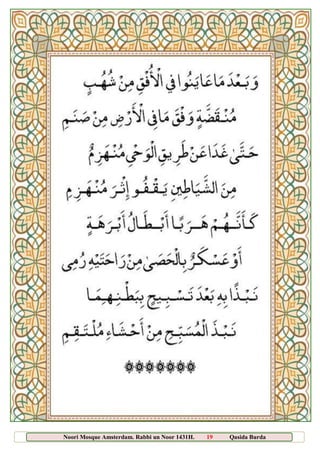 وَبَعْدَ مَا عَايَنُوا فِي الْأُفْقِ مِنْ شُهُبٍ
مُنْقَضَّةٍ وَفْقَ مَا فِي الْأَرْضِ مِنْ صَنَمِ
حَتّٰى غَدَا عَنْ طَرِيقِ الْوَحْيِ مُنْهَزِمٌ
مِنَ الشَّيَاطِينِ يَقْفُو إِثْرَ مُنْهَزِمِ
كَأَنَّهُمْ هَرَبًا أَبْطَالُ أَبْرَهَةٍ
أَوْ عَسْكَرٌ بِالْحَصَى مِنْ رَاحَتَيْهِ رُمِي
نَبْذًا بِهِ بَعْدَ تَسْبِيحٍ بِبَطْنِهِمَا
نَبْذَ الْمُسَبِّحِ مِنْ أَحْشَاءِ مُلْتَقِمِ
Noori Mosque Amsterdam. Rabbi un Noor 1431H. 19 Qasida Burda